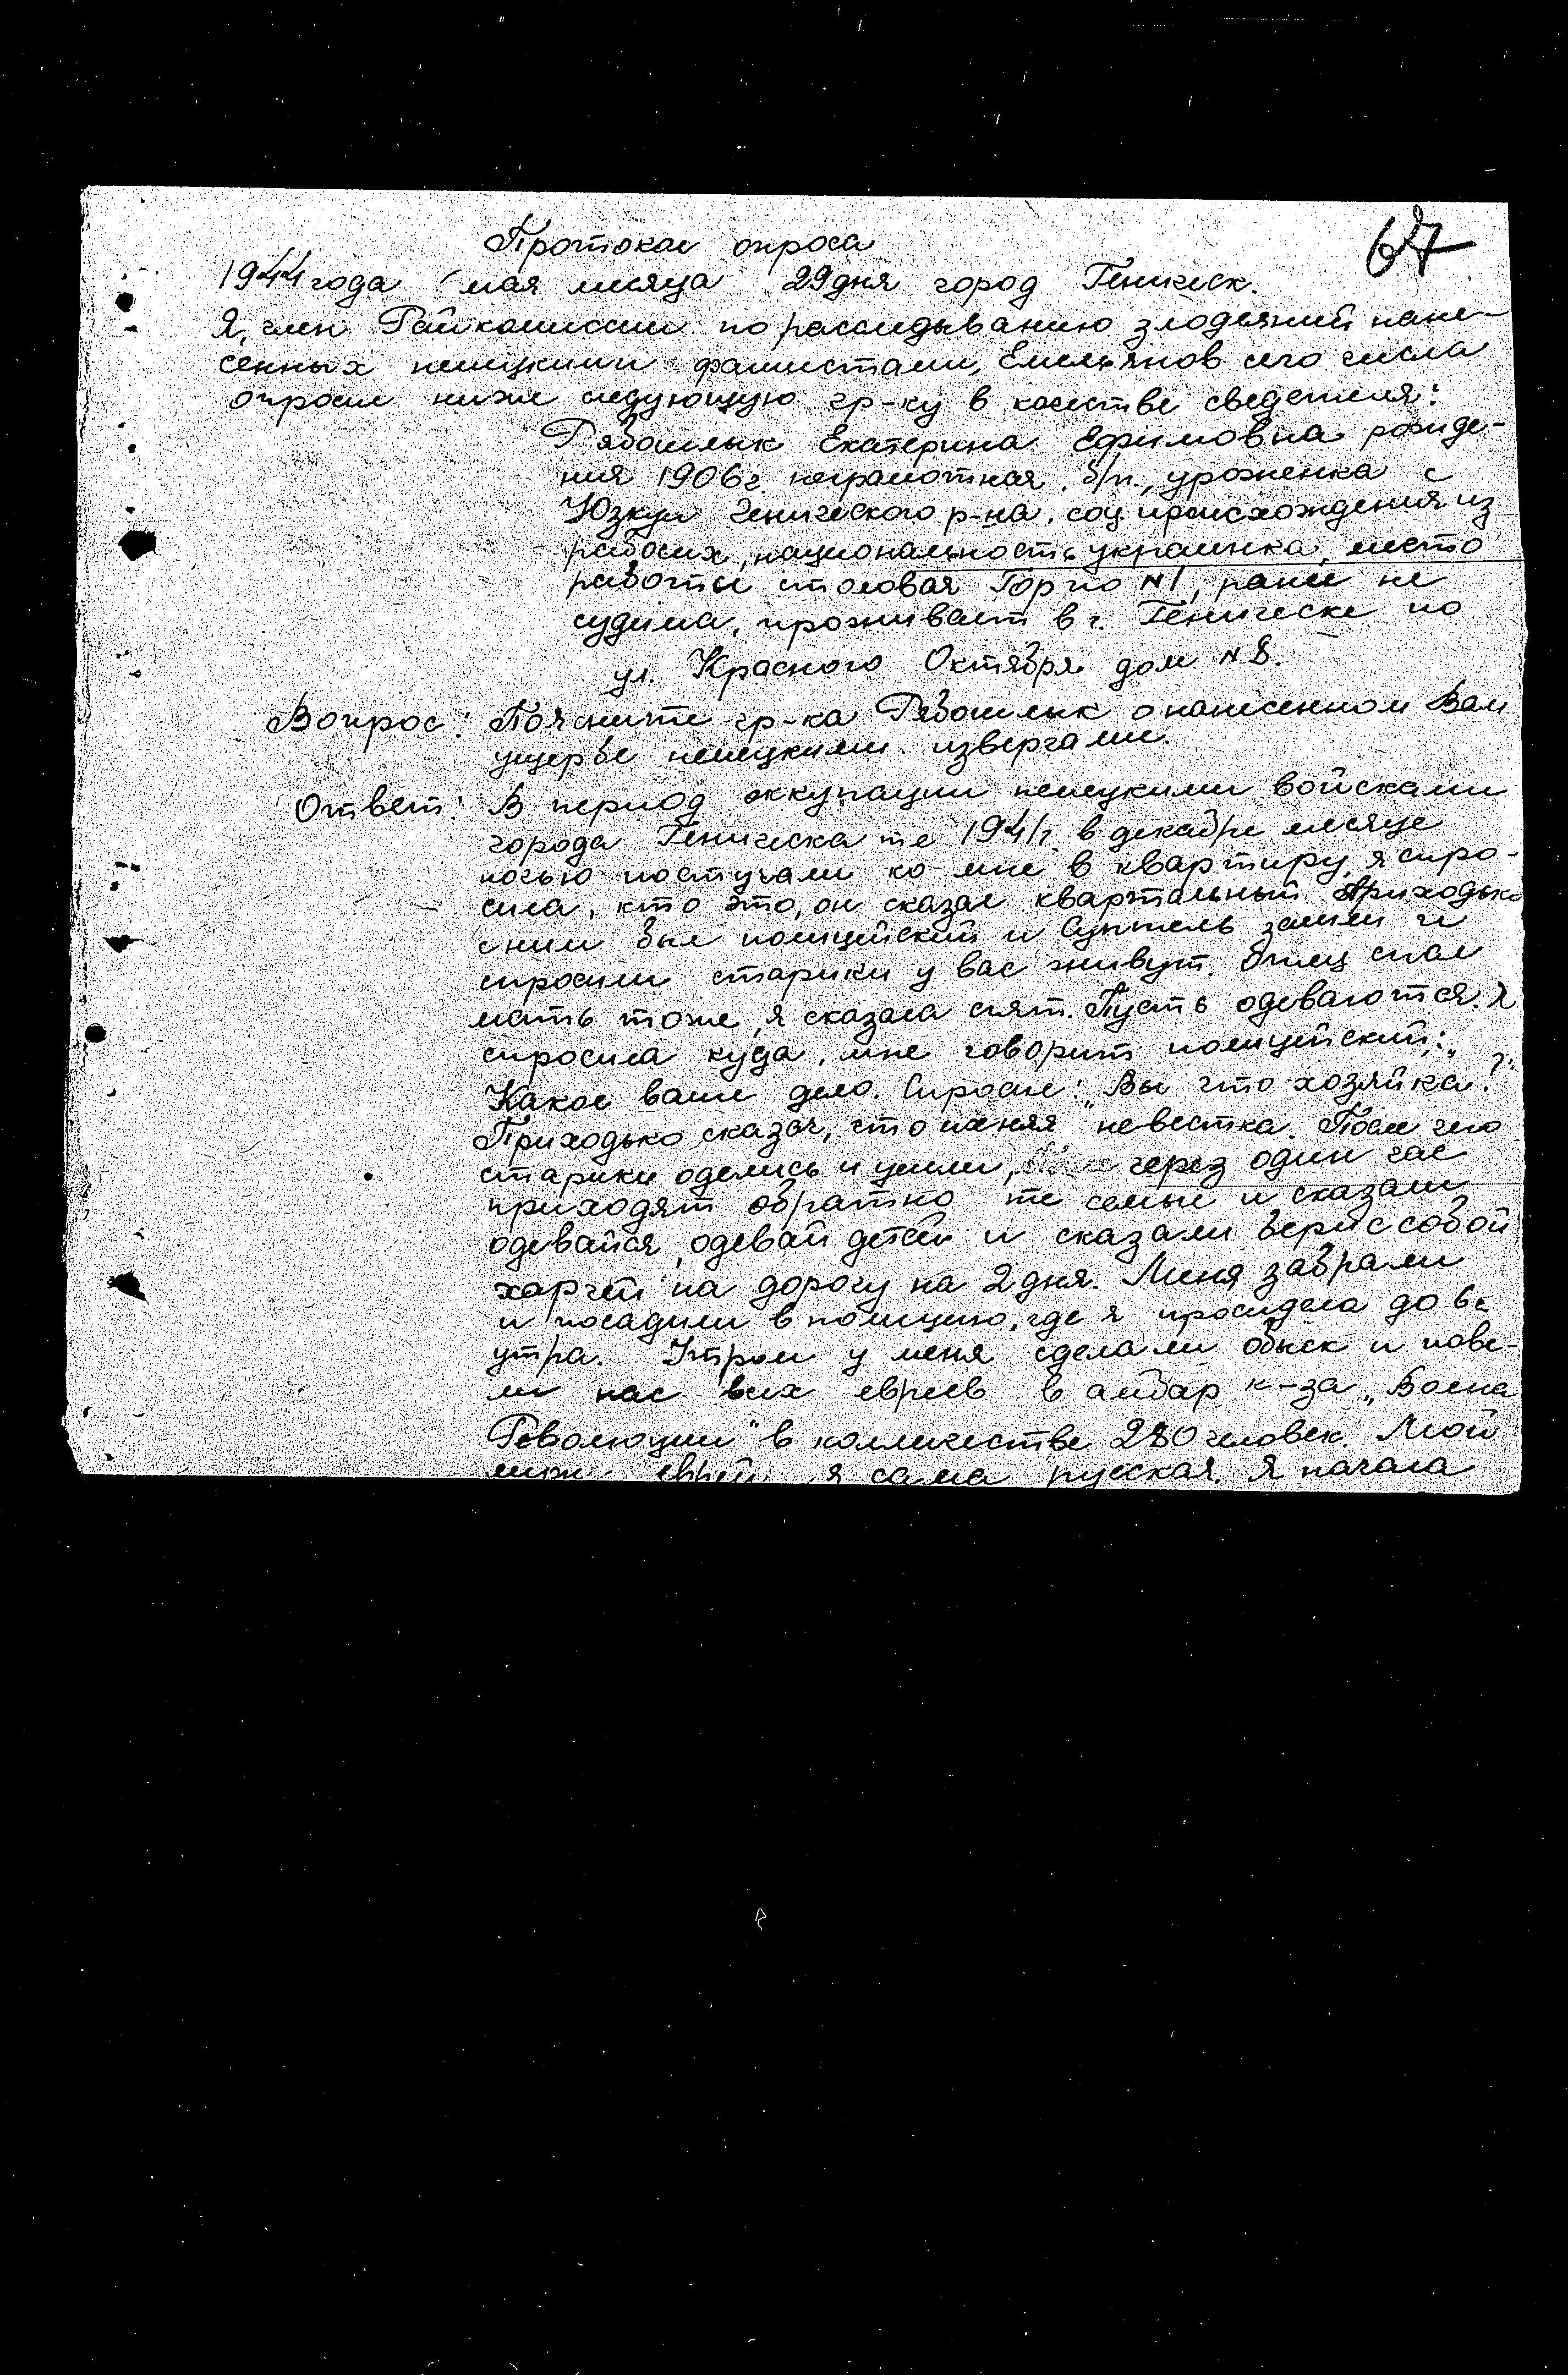 67
Протокол опроса
1944 года мая месяца 29 дня город Геническ.
Я, член Райкомиссии по расследыванию злодеяний нане-
сенных немецкими фашистами, Емельянов сего числа
опросил ниже следующую гр-ку в качестве сведетеля:
Рябошлык Екатерина Ефимовна рожде-
ния 1906 г. неграмотная, б/п., уроженка с
Юзкуи Генического р-на, соц. происхождения из
рабочих, национальность украинка, место
работы столовая Горпо №1, ранее не
судима, проживает в г. Геническе по
ул. Красного Октября дом №8.
Вопрос: Поясните гр-ка Рябошлык о нанесенном Вам
ущербе немецкими извергами.
Ответ: В период оккупации немецкими войсками
города Геническа те 1941 г. в декабре месяце
ночью постучали ко мне в квартиру, я спро-
сила, кто это, он сказал квартальный Приходько
с ним был полицейский и зашли и
спросили старики у вас живут. Отец спал
мать тоже, я сказала спят. Пусть одеваются. Я
спросила куда, мне говорит полицейский: "
Какое ваше дело. Спросил: "Вы что хозяйка?"
Приходько сказал, что ихняя невестка. После чего
старики оделись и ушли, через один час
приходят обратно те самые и сказали
одевайся, одевай детей и сказали бери с собой
харчей на дорогу на 2 дня. Меня забрали
и посадили в полицию, где я просидела до
утра. Утром у меня сделали обыск и пове-
ли нас всех евреев в амбар к-за "Воена
Революции" в количестве 280 человек. Мой
муж еврей, я сама русская. Я начала